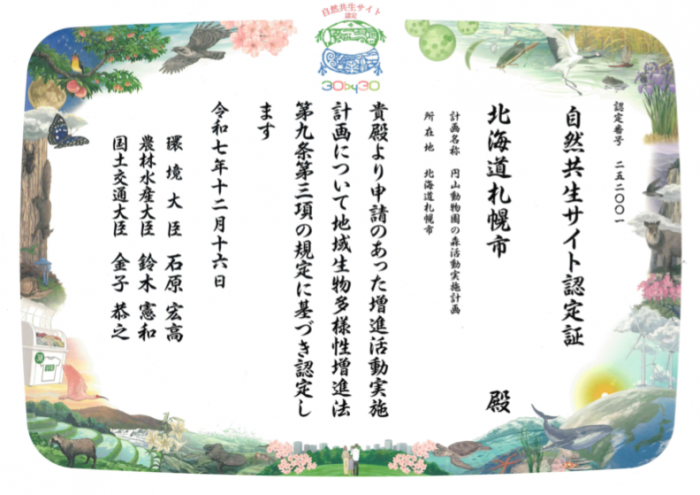 自然共生サイト
認定
30by30
認定番号 二五二〇〇一
自然共生サイト認定証
北海道札幌市 殿
計画名称 円山動物園の森活動実施計画
所在地 北海道札幌市
貴殿より申請のあった増進活動実施
計画について地域生物多様性増進法
第九条第三項の規定に基づき認定し
ます
令和七年十二月十六日
環境大臣 石原宏高
農林水産大臣 鈴木憲和
国土交通大臣 金子恭之